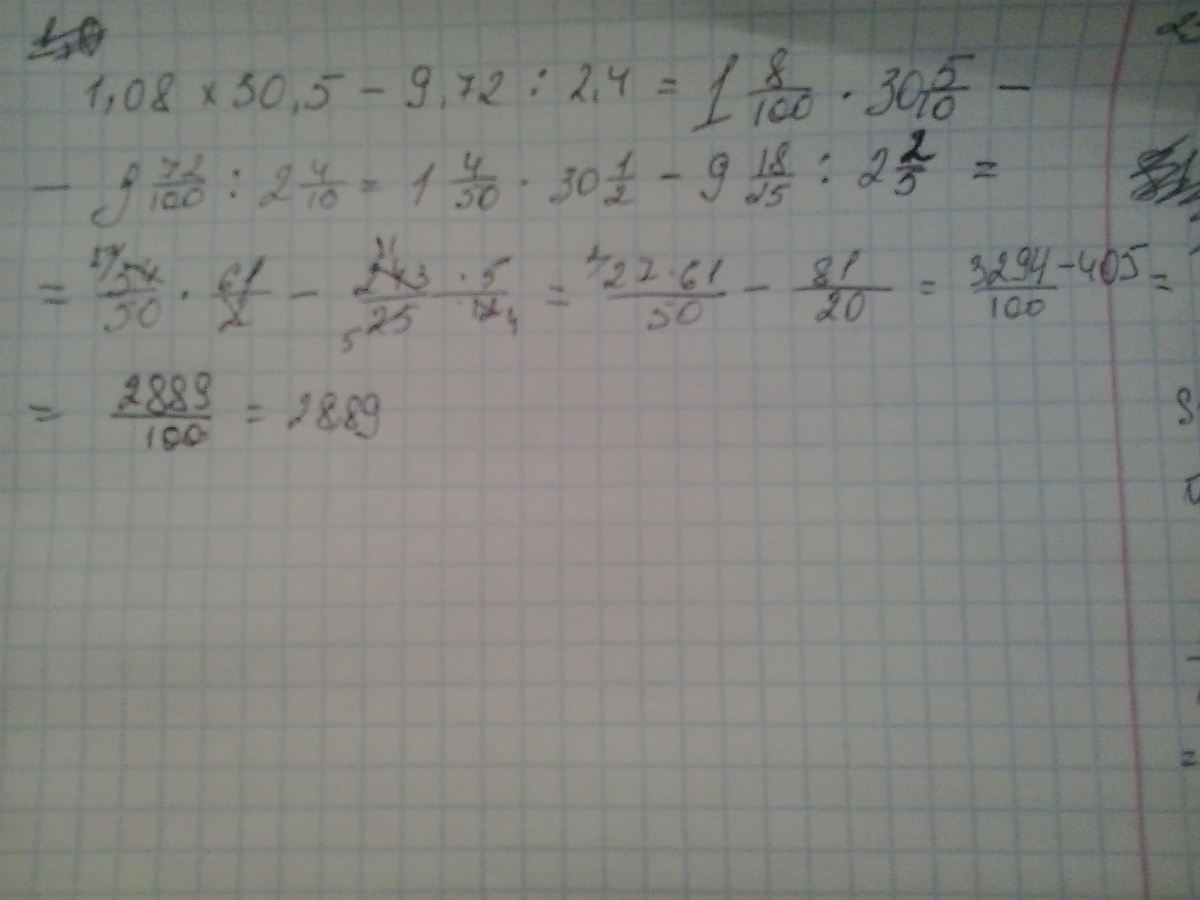 1,08 × 30,5 - 9,72 : 2,4 = 1 8/100 · 30 5/10 -
- 9 72/100 : 2 4/10 = 1 4/50 · 30 1/2 - 9 18/25 : 2 2/5 =
= 27/54/50 · 61/2 - 243 · 5/25 · 12 = 2/27·61/50 - 81/20 = 3294-405/100 =
= 2889/100 = 2889